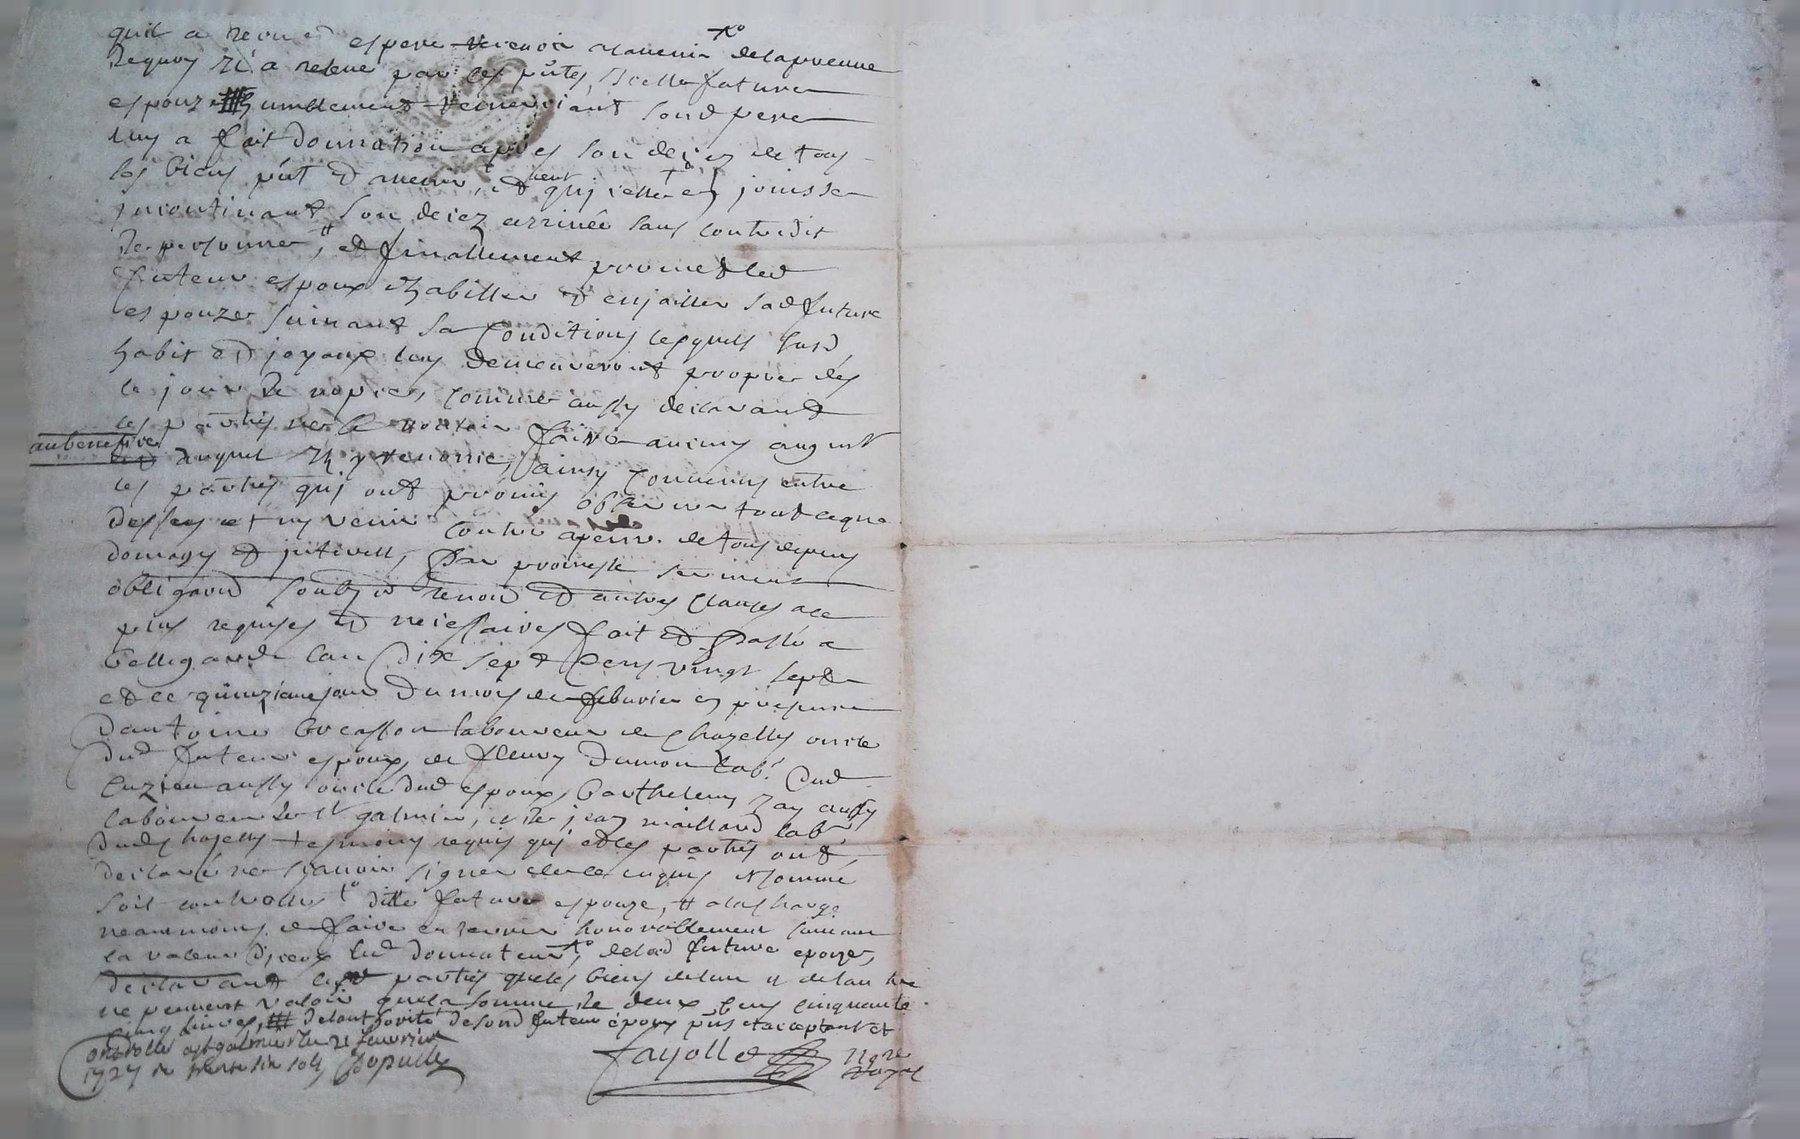 quil a receu et espere recevoir alavenir to delaprenne
dequoy il a releué par les pñtes, icelle future
espouze humblement remerciant sond pere
luy a fait donnation apres son decez de tous
les biens pñt et avenir, et veut qu'icelle en jouisse
incontinant son decez arrivée sans contredit
de personne, # et finallement promet led
futeur espoux habiller et enjailler sad future
espouze suivant sa conditions lesquels susd
habit et joyaux luy demeureront propre dés
le jour de nopces, comme aussy declarant
les parties ne vouloir faire aucuns augmt
au benefice duquel ils renonce, ainsy convenus entre
les parties quj ont promis observer tout ceque
dessus et ny venir contre apeine de tous depens
domages et jnterests, par promesse serment
obligaõn soubz et renoñ et autres clauses ace
plus requises et necessaires fait et passé a
Bellegarde lan dix sept cens vingt sept
et ce quinzieme jour du mois de febvrier en presence
dantoine laboureur de chazelles oncle
dud futeur espoux, de fleury dumon labr. dud
Cuzieu aussy oncle dud espoux, barthelemy aussy
laboureur de st galmier, et de jean maillard labr
dud chazelles tesmoins requis quj et les parties ont
declaré ne scavoir signer de ce enquis et sommé
soit controllé to ditte future espouze, # alacharge
neanmoins de faire enterrer honorablement suivant
la valeur diceux led donnateur, to delad future epouze,
declarant lesd parties queles biens delun et delautre
ne peuvent valoir quela somme de deux cens cinquante
cinq livres, # delauthorité desond futeur époux pñt et acceptant et
Controllé a st galmier le 21 fevrier
1727 R trente six sols
fayolle nore royal